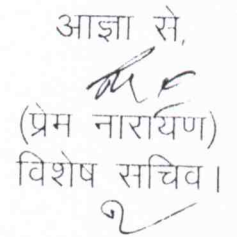 आज्ञा से,
(प्रेम नारायण)
विशेष सचिव।